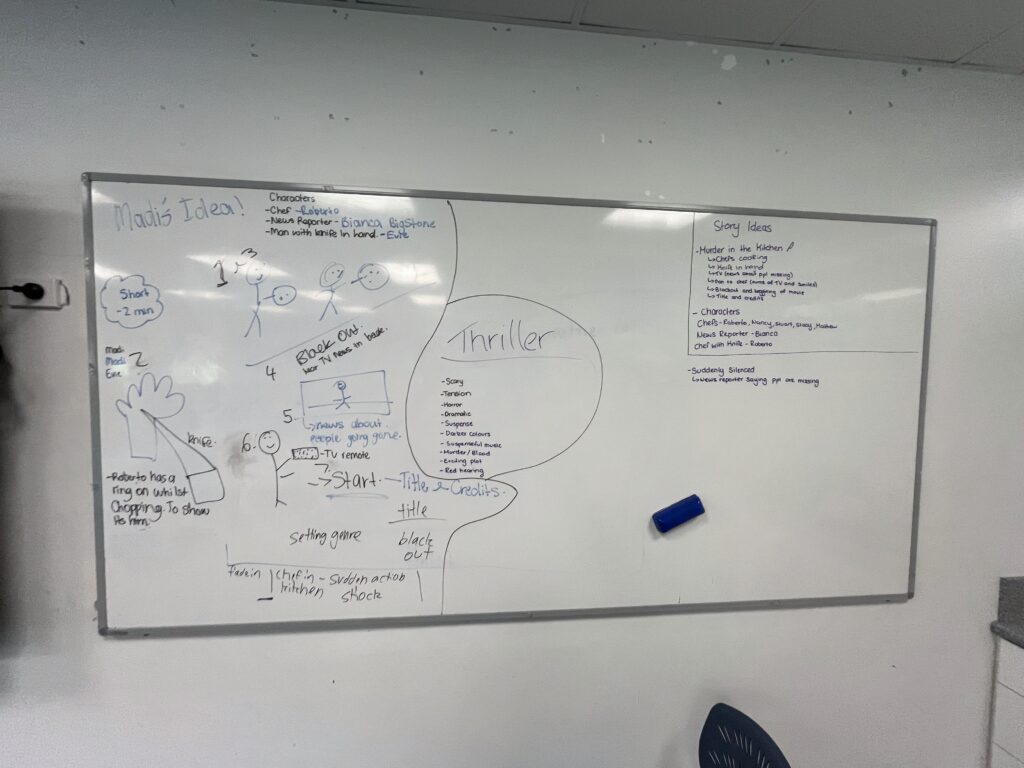 Madi's Idea!
Characters
-Chef -Roberto
-News Reporter -Bianca BigStone
-Man with knife in hand -Evie
Short
-2 min
1,3
Madi
Madi
Evie
2
4
Black Out.
hear TV news in back.
5.
↳news about
people going gone.
6.
-TV remote
knife.
-Roberto has a
ring on whilst
Chopping. To show
its him
7.
→Start. -Title & Credits.
title
setting genre
black
out
fade in
chef in - sudden action
kitchen shock
Thriller
-Scary
-Tension
-Horror
-Dramatic
-Suspense
-Darker colours
-Suspenseful music
-Murder/Blood
-Exciting plot
-Red hearing
Story Ideas
-Murder in the Kitchen
↳Chefs cooking
↳Knife in hand
↳TV (news about ppl missing)
↳Pan to chef (turns of TV and smiles)
↳Blackout and beginning of movie
↳Title and credits
- Characters
Chefs - Roberto, Nancy, Stuart, Stacy,
News Reporter - Bianca
Chef with Knife - Roberto
-Suddenly Silenced
↳News reporter saying ppl are missing